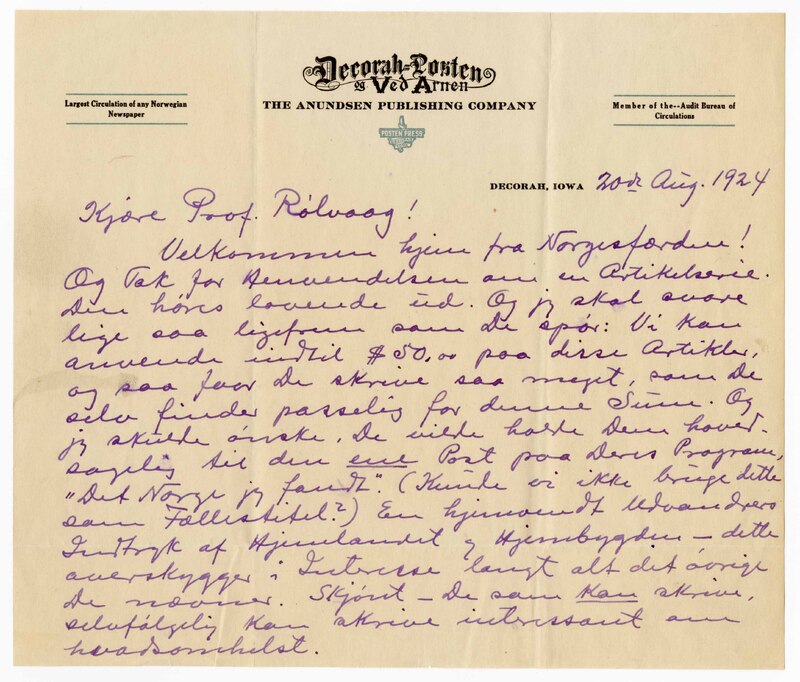 Decorah-Posten
og Ved Arnen
THE ANUNDSEN PUBLISHING COMPANY
Largest Circulation of any Norwegian
Newspaper
Member of the--Audit Bureau of
Circulations
POSTEN PRESS
DECORAH, IOWA 20de Aug. 1924
Kjære Prof. Rölvaag!
Velkommen hjem fra Norgesfærden!
Og Tak for Henvendelsen om en Artikelserie.
Den høres lovende ud. Og jeg skal svare
lige saa ligefrem som De spør: Vi kan
anvende indtil $50.00 paa disse Artikler,
og saa faar De skrive saa meget, som De
selv finder passelig for denne Sum. Og
jeg skulde ønske, De vilde holde Dem hoved-
sagelig til den ene Post paa Deres Program,
"Det Norge jeg fandt". (Kunde vi ikke bruge dette
som Fællestitel?) En hjemvendt Udvandrers
Indtryk af Hjemlandet og Hjembygden — dette
overskygger i Interesse langt alt det øvrige
De nævner. Skjønt — De som kan skrive,
selvfølgelig kan skrive interessant om
hvadsomhelst.